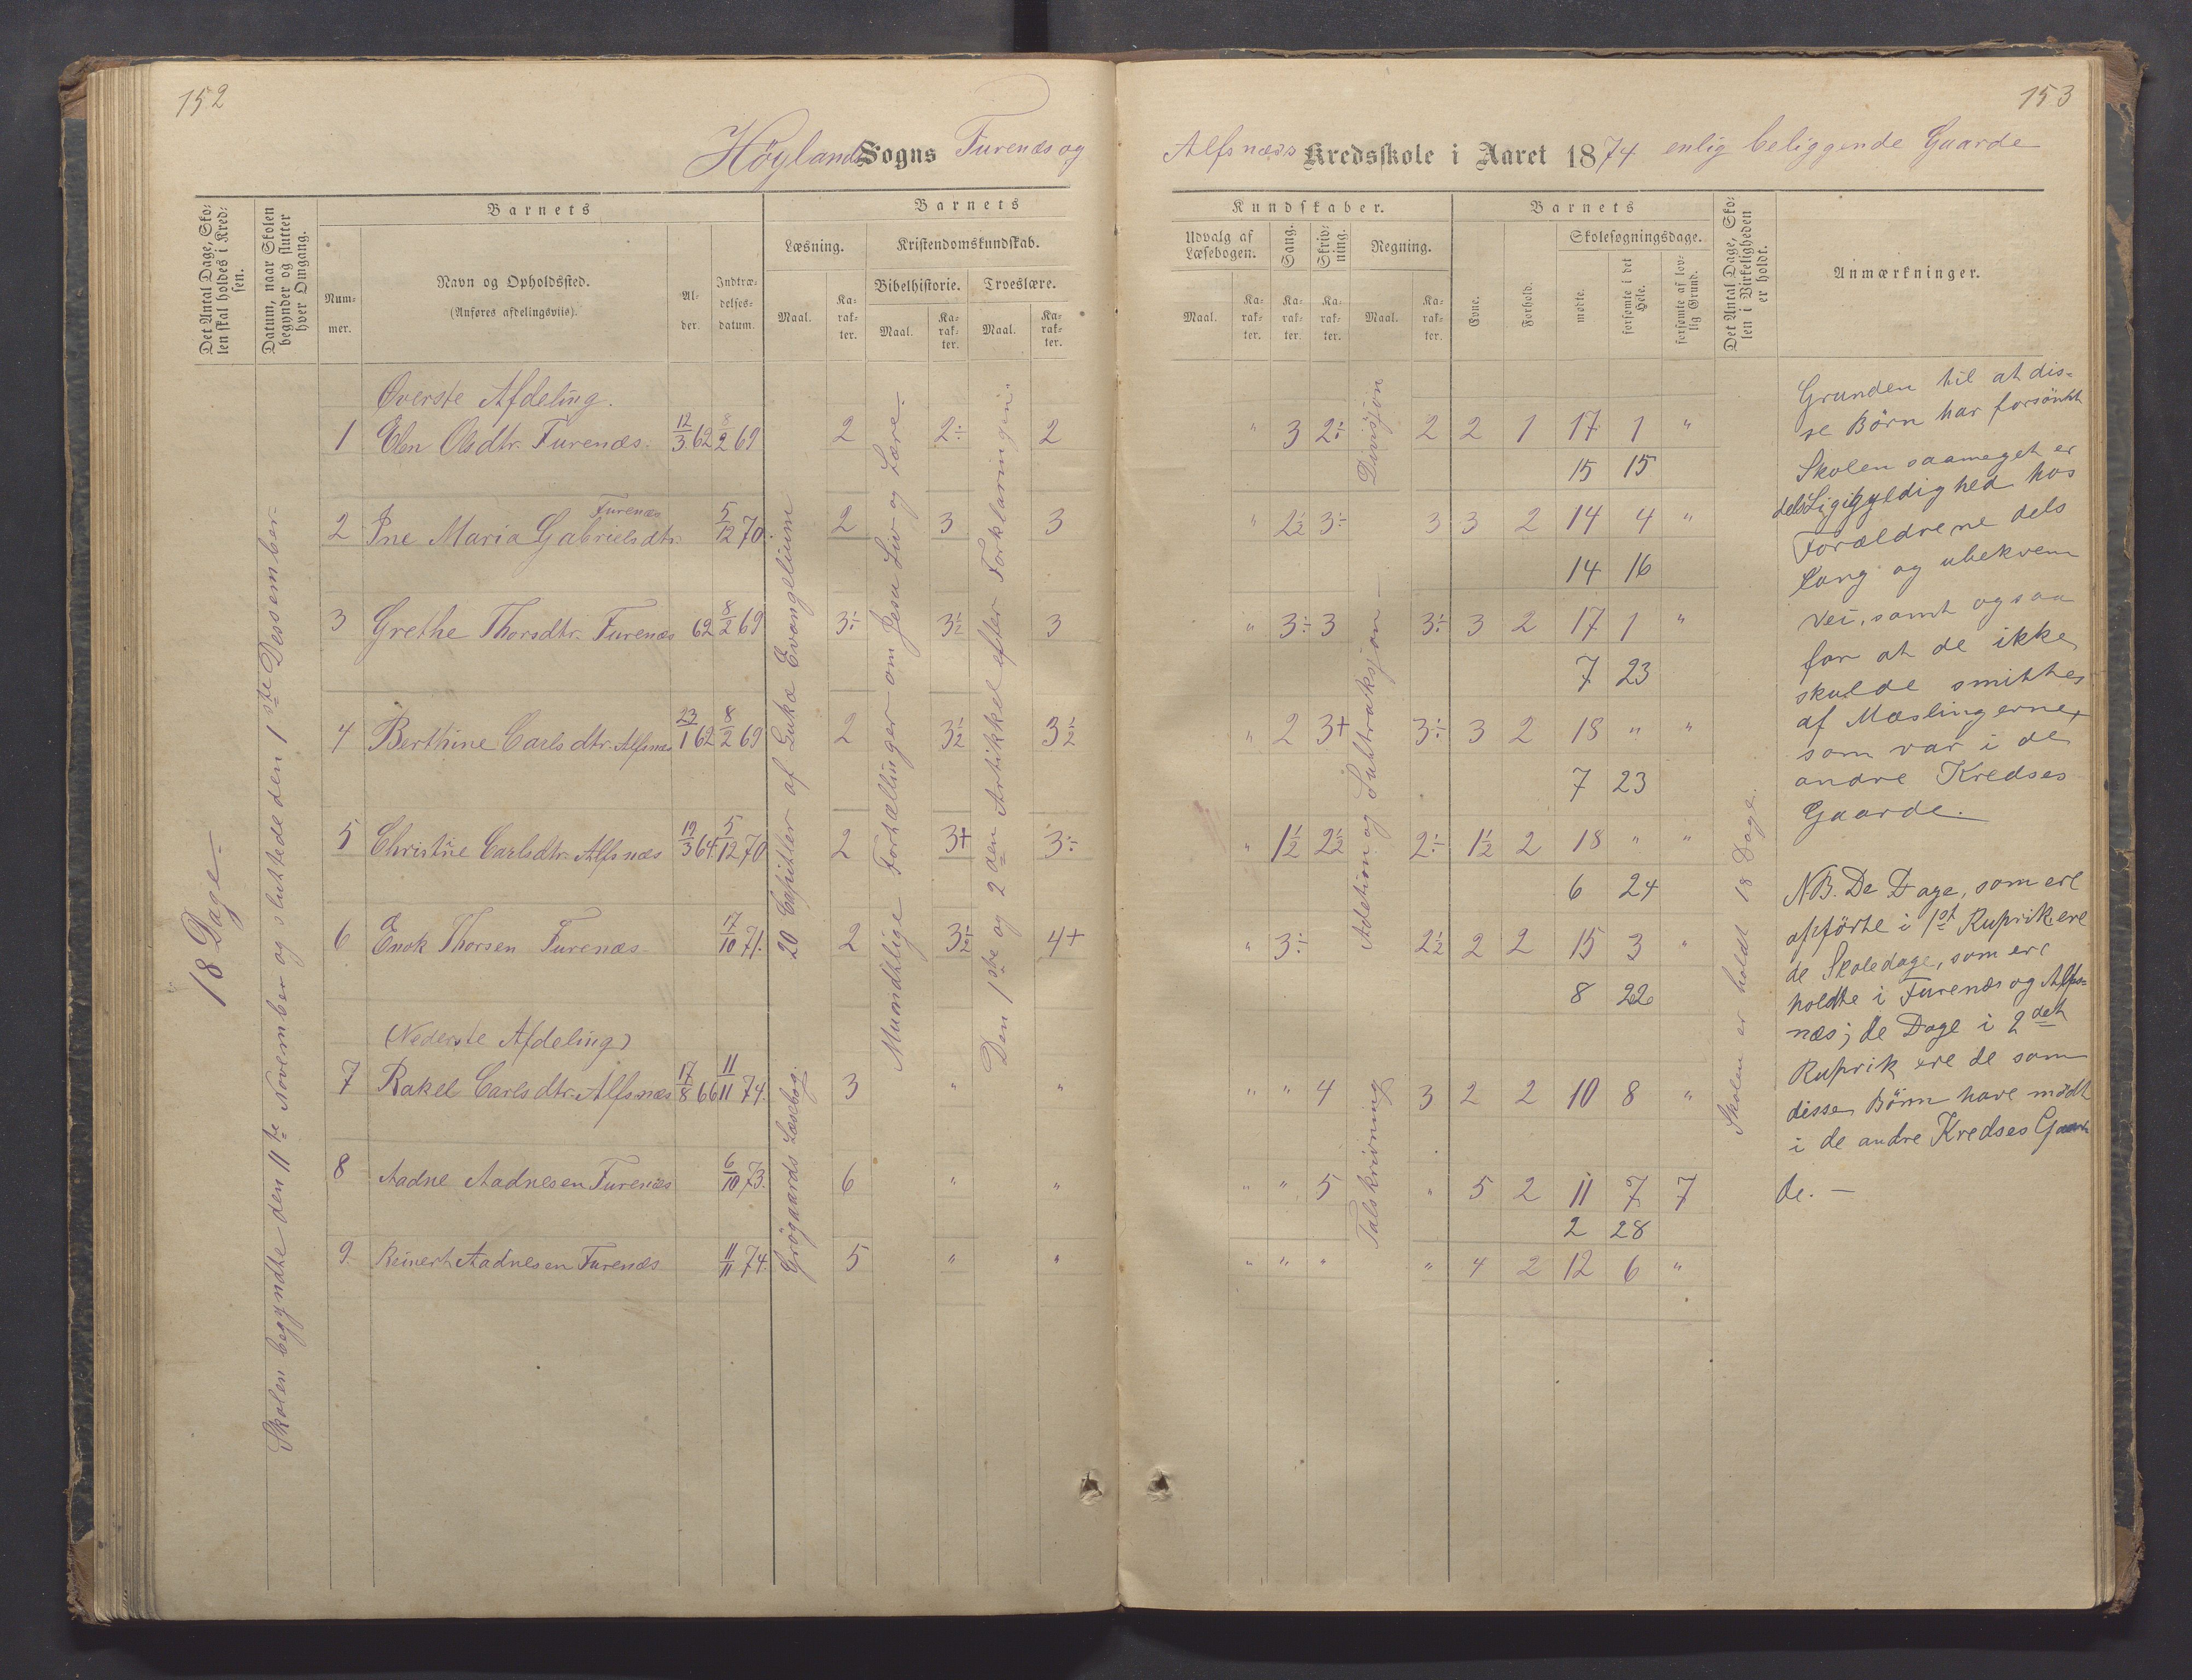 152
153
Höylands Sogns Furenæs og Alfsnæss Kredsskole i Aaret 1874 enlig beliggende Gaarde
Det Antal Dage, Sko-
len skal holdes i Kred-
sen.
Datum, naar Skolen
begynder og slutter
hver Omgang.
Barnets
Num-
mer.
Navn og Opholdssted.
(Anføres afdelingsviis).
Al-
der.
Indtræ-
delses-
datum.
Barnets
Læsning.
Maal.
Ka-
rak-
ter.
Kristendomskundskab.
Bibelhistorie.
Maal.
Ka-
rak-
ter.
Troeslære.
Maal.
Ka-
rak-
ter.
Kundskaber.
Udvalg af
Læsebogen.
Maal.
Ka-
rak-
ter.
Sang.
Ka-
rak-
ter.
Skriv-
ning.
Ka-
rak-
ter.
Regning.
Maal.
Ka-
rak-
ter.
Barnets
Evne.
Forhold.
Skolesøgningsdage.
mødte.
forsømte i det
Hele.
forsømte af lov-
lig Grund.
Det Antal Dage, Sko-
len i Virkeligheden
er holdt.
Anmærkninger.
18 Dage
Skolen begyndte den 11te November og sluttede den 1ste Dessember
20 Capitler af Lukæ Evangelium
Grøgaards Læsebog.
Mundtlige Fortællinger om Jesu Liv og Lære
Den 1ste og 2den Artikkel efter Forklaringen
Adetion og Subtraksjon
Divisjon
Talskrivning
Skolen er holdt 18 Dage.
Øverste Afdeling.
1 Elen Olsdtr. Furenæs 12/3 62 8/2 69 2 2÷ 2 " 3 2÷ 2 2 1 17 1 "
15 15
Furenæs
2 Ine Maria Gabrielsdtr. 5/12 70. 2 3 3 " 2½ 3÷ 3 3 2 14 4 "
14 16
3 Grethe Thorsdtr. Furenæs 62 8/2 69 3÷ 3½ 3 " 3÷ 3 3÷ 3 2 17 1 "
7 23
4 Berthine Carlsdtr. Alfsnæs 23/1 62 8/2 69 2 3½ 3½ " 2 3+ 3÷ 3 2 18 " "
7 23
5 Christine Carlsdtr. Alfsnæs 19/3 64. 5/12 70 2 3+ 3÷ " 1½ 2½ 2÷ 1½ 2 18 " "
6 24
6 Enok Thorsen Furenæs 17/10 71. 2 3½ 4+ " 3÷ 2½ 2 2 15 3 "
8 22
(Nederste Afdeling)
7 Rakel Carlsdtr. Alfsnæs 17/8 66 11/11 74. 3 " " " " 4 3 2 2 10 8 "
8 Aadne Aadnesen Furenæs 6/10 73. 6 " " " " 5 " 5 2 11 7 7
2 28
9 Reinert Aadnesen Furenæs 11/11 74. 5 " " " " " " 4 2 12 6 "
Grunden til at dis-
se Børn har forsømt
Skolen saameget er
dels Ligegyldighed hos
Forældrene dels
lang og ubekvem
Vei, samt ogsaa
for at de ikke
skulde smittes
af Mæslingerne,
som var i de
andre Kredses
Gaarde.
NB. De Dage, som ere
opførte i 1st Ruprik ere
de Skoledage, som ere
holdte i Furenæs og Alfs-
næs; de Dage i 2det
Ruprik ere de som
disse Børn have mødt
i de andre Kredses Gaar
de. —